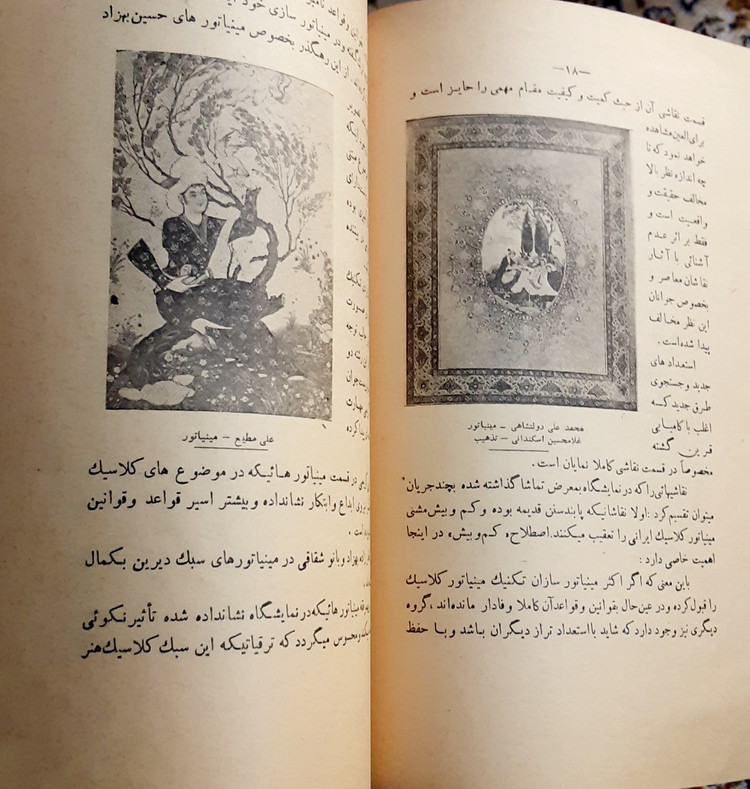 —۱۸—
قسمت نقاشی آن از حیث کمیت و کیفیت مقـام مهمی را حایـز است و
برای‌العین‌مشاهده
خواهد نمود که تا
چه اندازه نظر بالا
مخالف حقیقت و
واقعیت است و
فقط بر اثر عـدم
آشنائی با آثـار
نقاشان معاصر و
بخصوص جوانان
این نظر مخـالف
پیدا شده‌است .
استعداد های
جدید و جستجوی
طرق جدید کـه
اغلب با کامیـابی
قـرین گشته
محمد علی دولتشاهی – مینیاتور
غلامحسین اسکندانی – تذهیب
مخصوصاً در قسمت نقاشی کاملا نمایان است .
نقاشیهائی‌را که در نمایشگاه بمعرض تماشا گذاشته شده بچندجریان
میتوان تقسیم‌کرد : اولا نقاشانیکه پابند سنن قدیمه بوده و کـم و بیش مشی
مینیاتور کلاسیك ایرانی را تعقیب میکنند. اصطلاح «کم و بیش» در اینجا
اهمیت خاصی دارد :
باین معنی که اگر اکثر مینیاتور سازان تکنیك مینیاتور کلاسیك
را قبول‌کرده و در عین‌حال بقوانین و قواعدآن کاملا وفادار مانده‌اند ، گروه
دیگری نیز وجود دارد که شاید با استعداد تر از دیگران باشد و بـا حفظ
و قواعد
گفته و در مینیاتور سازی خود
از این رهگذر بخصوص مینیاتور های حسین بهزاد
علی مطیع – مینیاتور
در قسمت مینیاتور هـائیکه در موضوع های کلاسیك
ابداع و ابتکار نشانداده و بیشتر اسیر قواعد وقوانین
بهزاد و بانو شقاقی در مینیاتورهای سبك دیرین بکمال
مینیاتور هائیکه‌در نمایشگاه نشانداده شده تأثیر نکوئی
ومحسوس میگردد که ترقیاتیکه این سبك کلاسیك هنر